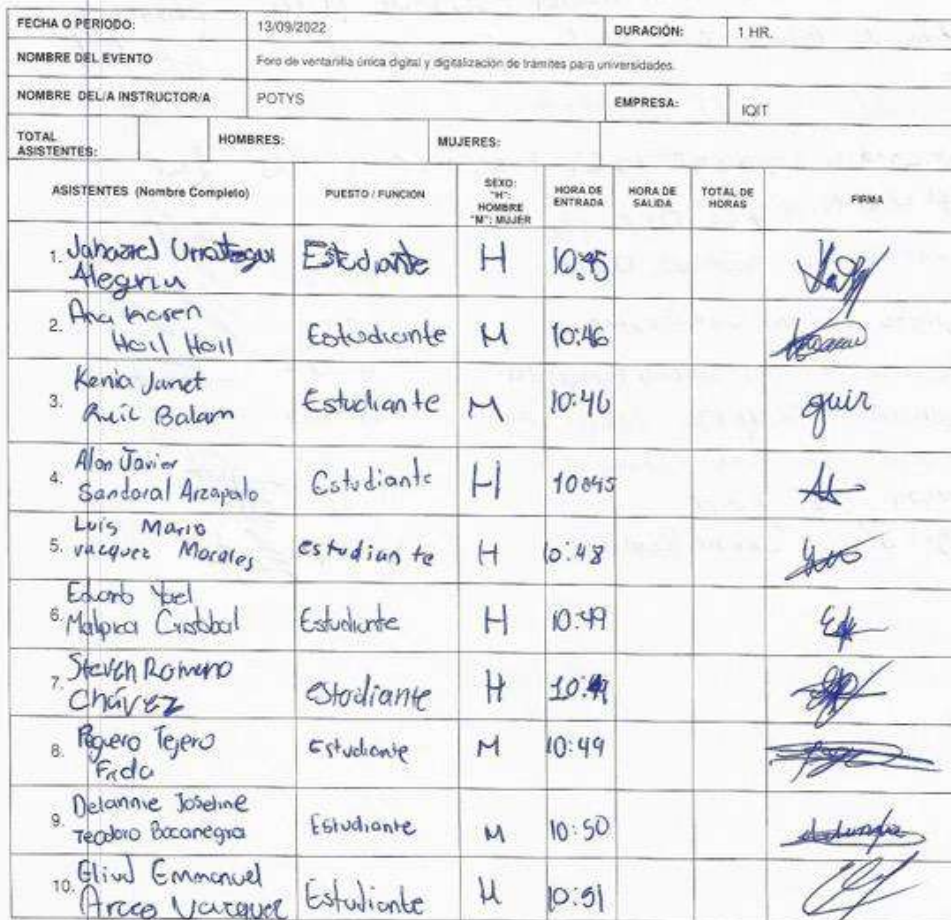 FECHA O PERIODO: 13/09/2022 DURACIÓN: 1 HR.
NOMBRE DEL EVENTO Foro de ventanilla única digital y digitalización de trámites para universidades.
NOMBRE DEL/A INSTRUCTOR/A POTYS EMPRESA: IQIT
TOTAL ASISTENTES: HOMBRES: MUJERES:
ASISTENTES (Nombre Completo) PUESTO / FUNCIÓN SEXO: "H": HOMBRE "M": MUJER HORA DE ENTRADA HORA DE SALIDA TOTAL DE HORAS FIRMA
1. Jahaziel
Estudiante H 10:45
2. Ana Karen
Hoil Hoil Estudiante M 10:46
3. Kenia Janet
Balam Estudiante M 10:46
4. Alan Javier
Sandoval Arzapalo Estudiante H 10:45
5. Luis Mario
vazquez Morales estudiante H 10:48
6. Yael
Malpica Cristobal Estudiante H 10:49
7. Steven Romero
Chávez estudiante H 10:49
8. Tejero
Frida Estudiante M 10:49
9. Delannie Joseline
Teodoro Bocanegra Estudiante M 10:50
10. Eliud Emmanuel
Vazquez Estudiante 10:51